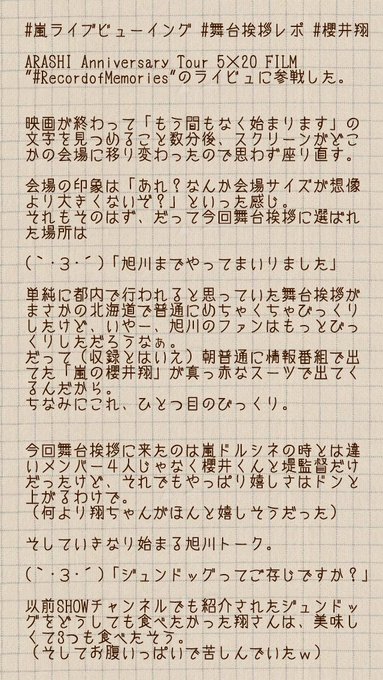 #嵐ライブビューイング #舞台挨拶レポ #櫻井翔
ARASHI Anniversary Tour 5×20 FILM
"#RecordofMemories"のライビュに参戦した。
映画が終わって「もう間もなく始まります」の
文字を見つめること数分後、スクリーンがどこ
かの会場に移り変わったので思わず座り直す。
会場の印象は「あれ？なんか会場サイズが想像
より大きくないぞ？」といった感じ。
それもそのはず、だって今回舞台挨拶に選ばれ
た場所は
(｀･3･´)「旭川までやってまいりました」
単純に都内で行われると思っていた舞台挨拶が
まさかの北海道で普通にめちゃくちゃびっくり
したけど、いやー、旭川のファンはもっとびっ
くりしただろうなぁ。
だって（収録とはいえ）朝普通に情報番組で出
てた「嵐の櫻井翔」が真っ赤なスーツで出てく
るんだから。
ちなみにこれ、ひとつ目のびっくり。
今回舞台挨拶に来たのは嵐ドルシネの時とは違
いメンバー４人じゃなく櫻井くんと堤監督だけ
だったけど、それでもやっぱり嬉しさはドンと
上がるわけで。
（何より翔ちゃんがほんと嬉しそうだった）
そしていきなり始まる旭川トーク。
(｀･3･´)「ジュンドッグってご存じですか？」
以前SHOWチャンネルでも紹介されたジュンドッ
グをどうしても食べたかった翔さんは、美味し
くて3つも食べたそう。
（そしてお腹いっぱいで苦しんでいたｗ）